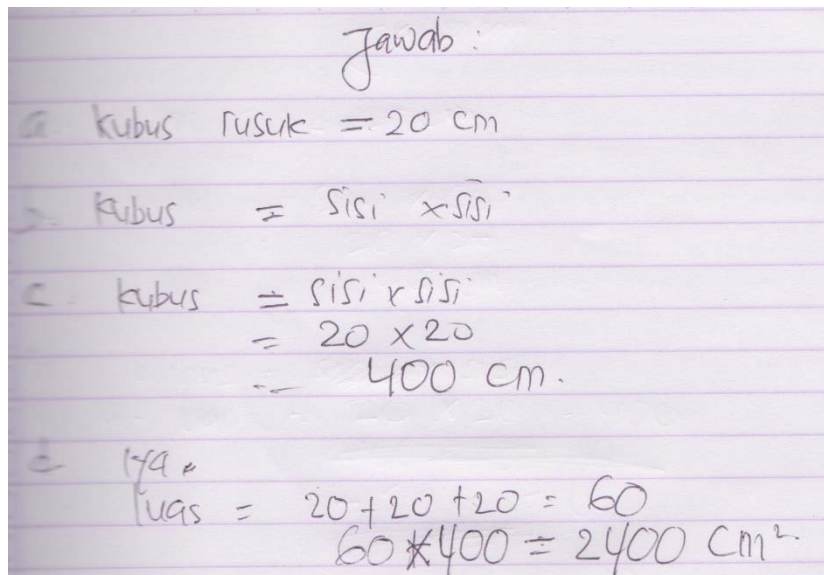 Jawab :
a. kubus rusuk = 20 cm
b. kubus = sisi x sisi
c. kubus = sisi x sisi
= 20 x 20
= 400 cm.
iya.
luas = 20 + 20 + 20 = 60
60 x 400 = 2400 cm²